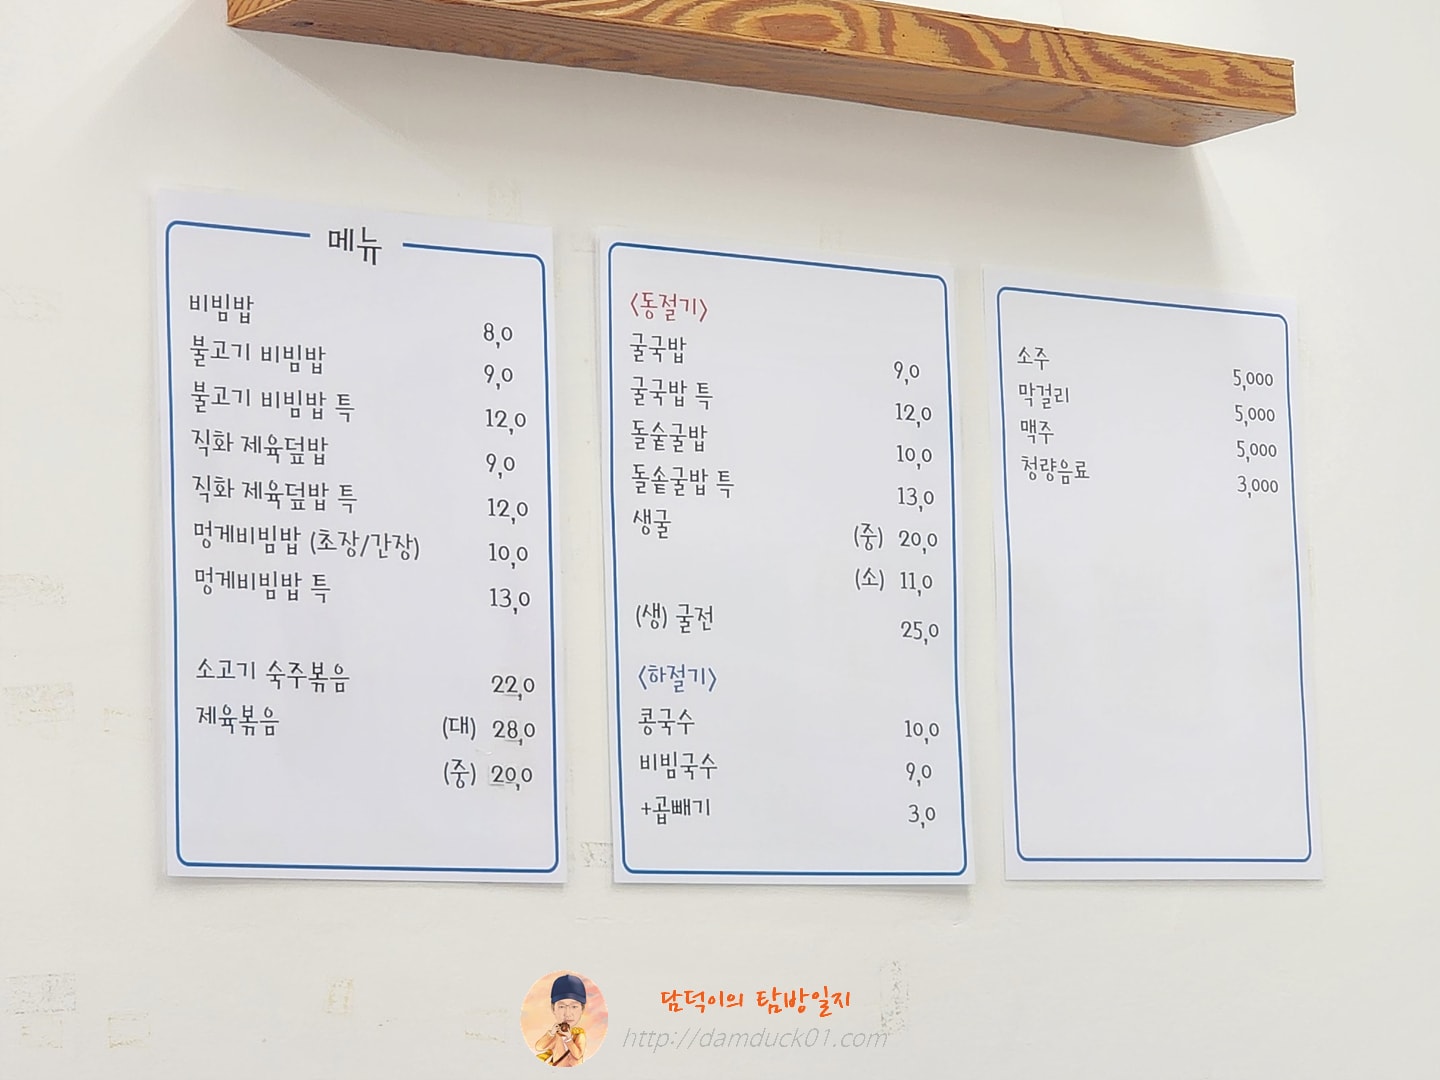 메뉴
비빔밥 8,0
불고기 비빔밥 9,0
불고기 비빔밥 특 12,0
직화 제육덮밥 9,0
직화 제육덮밥 특 12,0
멍게비빔밥 (초장/간장) 10,0
멍게비빔밥 특 13,0
소고기 숙주볶음 22,0
제육볶음 (대) 28,0
(중) 20,0
<동절기>
굴국밥 9,0
굴국밥 특 12,0
돌솥굴밥 10,0
돌솥굴밥 특 13,0
생굴 (중) 20,0
(소) 11,0
(생) 굴전 25,0
<하절기>
콩국수 10,0
비빔국수 9,0
+곱빼기 3,0
소주 5,000
막걸리 5,000
맥주 5,000
청량음료 3,000
담덕이의 탐방일지
http://damduck01.com